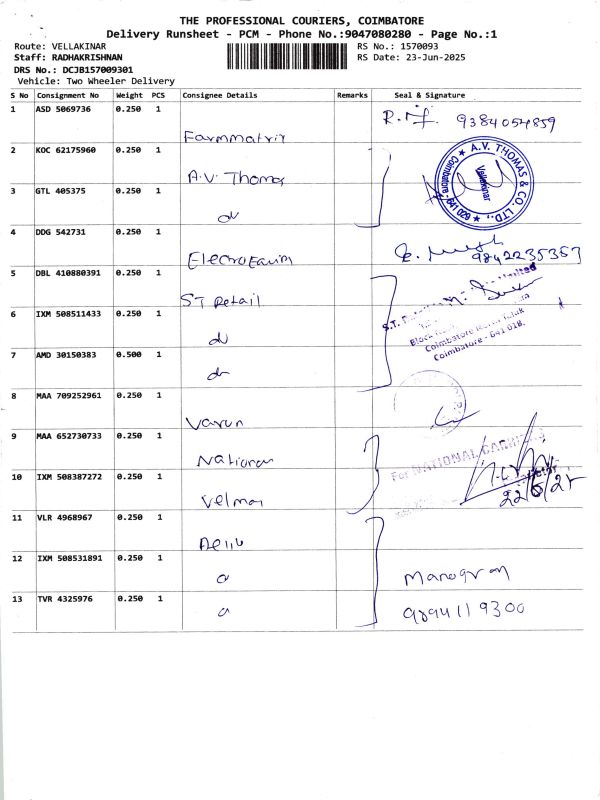 THE PROFESSIONAL COURIERS, COIMBATORE
Delivery Runsheet - PCM - Phone No.:9047080280 - Page No.:1
Route: VELLAKINAR RS No.: 1570093
Staff: RADHAKRISHNAN RS Date: 23-Jun-2025
DRS No.: DCJB157009301
Vehicle: Two Wheeler Delivery
S No Consignment No Weight PCS Consignee Details Remarks Seal & Signature
1 ASD 5069736 0.250 1
9384054859
2 KOC 62175960 0.250 1
A.V. Thomas
A.V. THOMAS & CO. LTD.,
Vellakinar
Coimbatore - 641 029
3 GTL 405375 0.250 1
4 DDG 542731 0.250 1
9842235367
5 DBL 410880391 0.250 1
ST Retail
6 IXM 508511433 0.250 1
Coimbatore - 641 018.
7 AMD 30150383 0.500 1
8 MAA 709252961 0.250 1
Varun
9 MAA 652730733 0.250 1
National
For NATIONAL
10 IXM 508387272 0.250 1
Velmas
11 VLR 4968967 0.250 1
12 IXM 508531891 0.250 1
13 TVR 4325976 0.250 1
9894119300